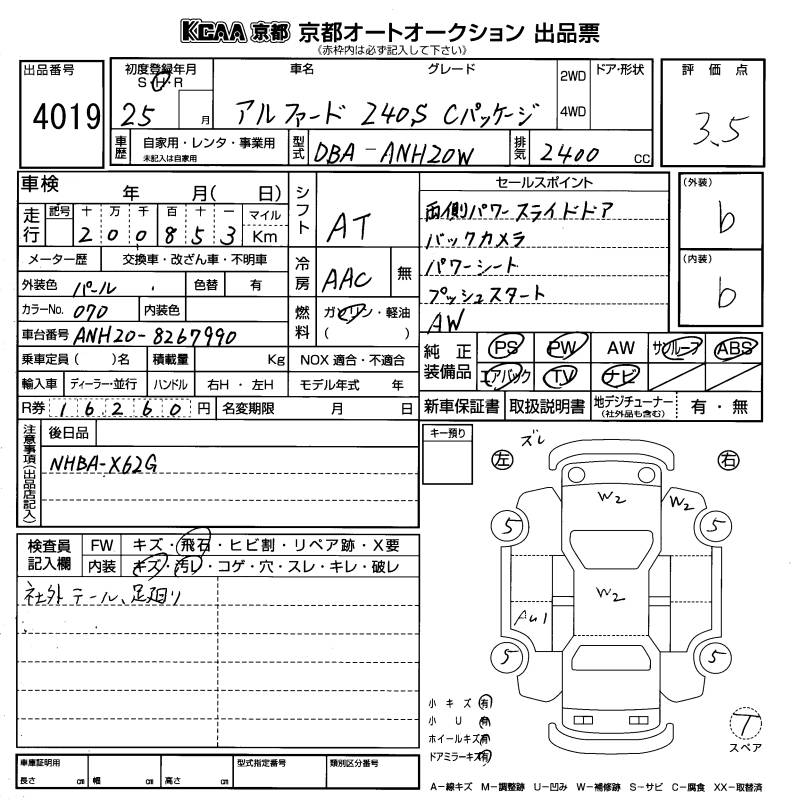 KCAA 京都 京都オートオークション 出品票
《赤枠内は必ず記入して下さい》
出品番号
4019
初度登録年月
S H R
25 月
車名 グレード
アルファード 240S Cパッケージ
2WD
4WD
ドア・形状
評価点
3.5
車歴 自家用・レンタ・事業用
未記入は自家用
型式 DBA-ANH20W
排気 2400 CC
車検 年 月( 日)
走行 記号 十 万 千 百 十 一 マイル
200853 Km
メーター歴 交換車・改ざん車・不明車
外装色 パール 色替 有
カラーNo. 070 内装色
車台番号 ANH20-8267990
乗車定員( )名 積載量 Kg NOX 適合・不適合
輸入車 ディーラー・並行 ハンドル 右H・左H モデル年式 年
R券 16260円 名変期限 月 日
シフト AT
冷房 AAC 無
燃料 ガソリン・軽油
( )
セールスポイント
両側パワースライドドア
バックカメラ
パワーシート
プッシュスタート
AW
(外装)
b
(内装)
b
純正装備品 PS PW AW サンルーフ ABS
エアバック TV ナビ
新車保証書 取扱説明書 地デジチューナー
(社外品も含む) 有・無
注意事項(出品店記入)
後日品
NHBA-X62G
キー預り
ズレ
左 右
W2 W2
5 5
W2
AU1
5 5
検査員記入欄 FW キズ・飛石・ヒビ割・リペア跡・X要
内装 キズ・汚レ・コゲ・穴・スレ・キレ・破レ
社外テール、足廻り
小キズ 有
小U 有
ホイールキズ 有
ドアミラーキズ 有
T
スペア
車庫証明用
長さ cm 幅 cm 高さ cm
型式指定番号 類別区分番号
A-線キズ M-調整跡 U-凹み W-補修跡 S-サビ C-腐食 XX-取替済